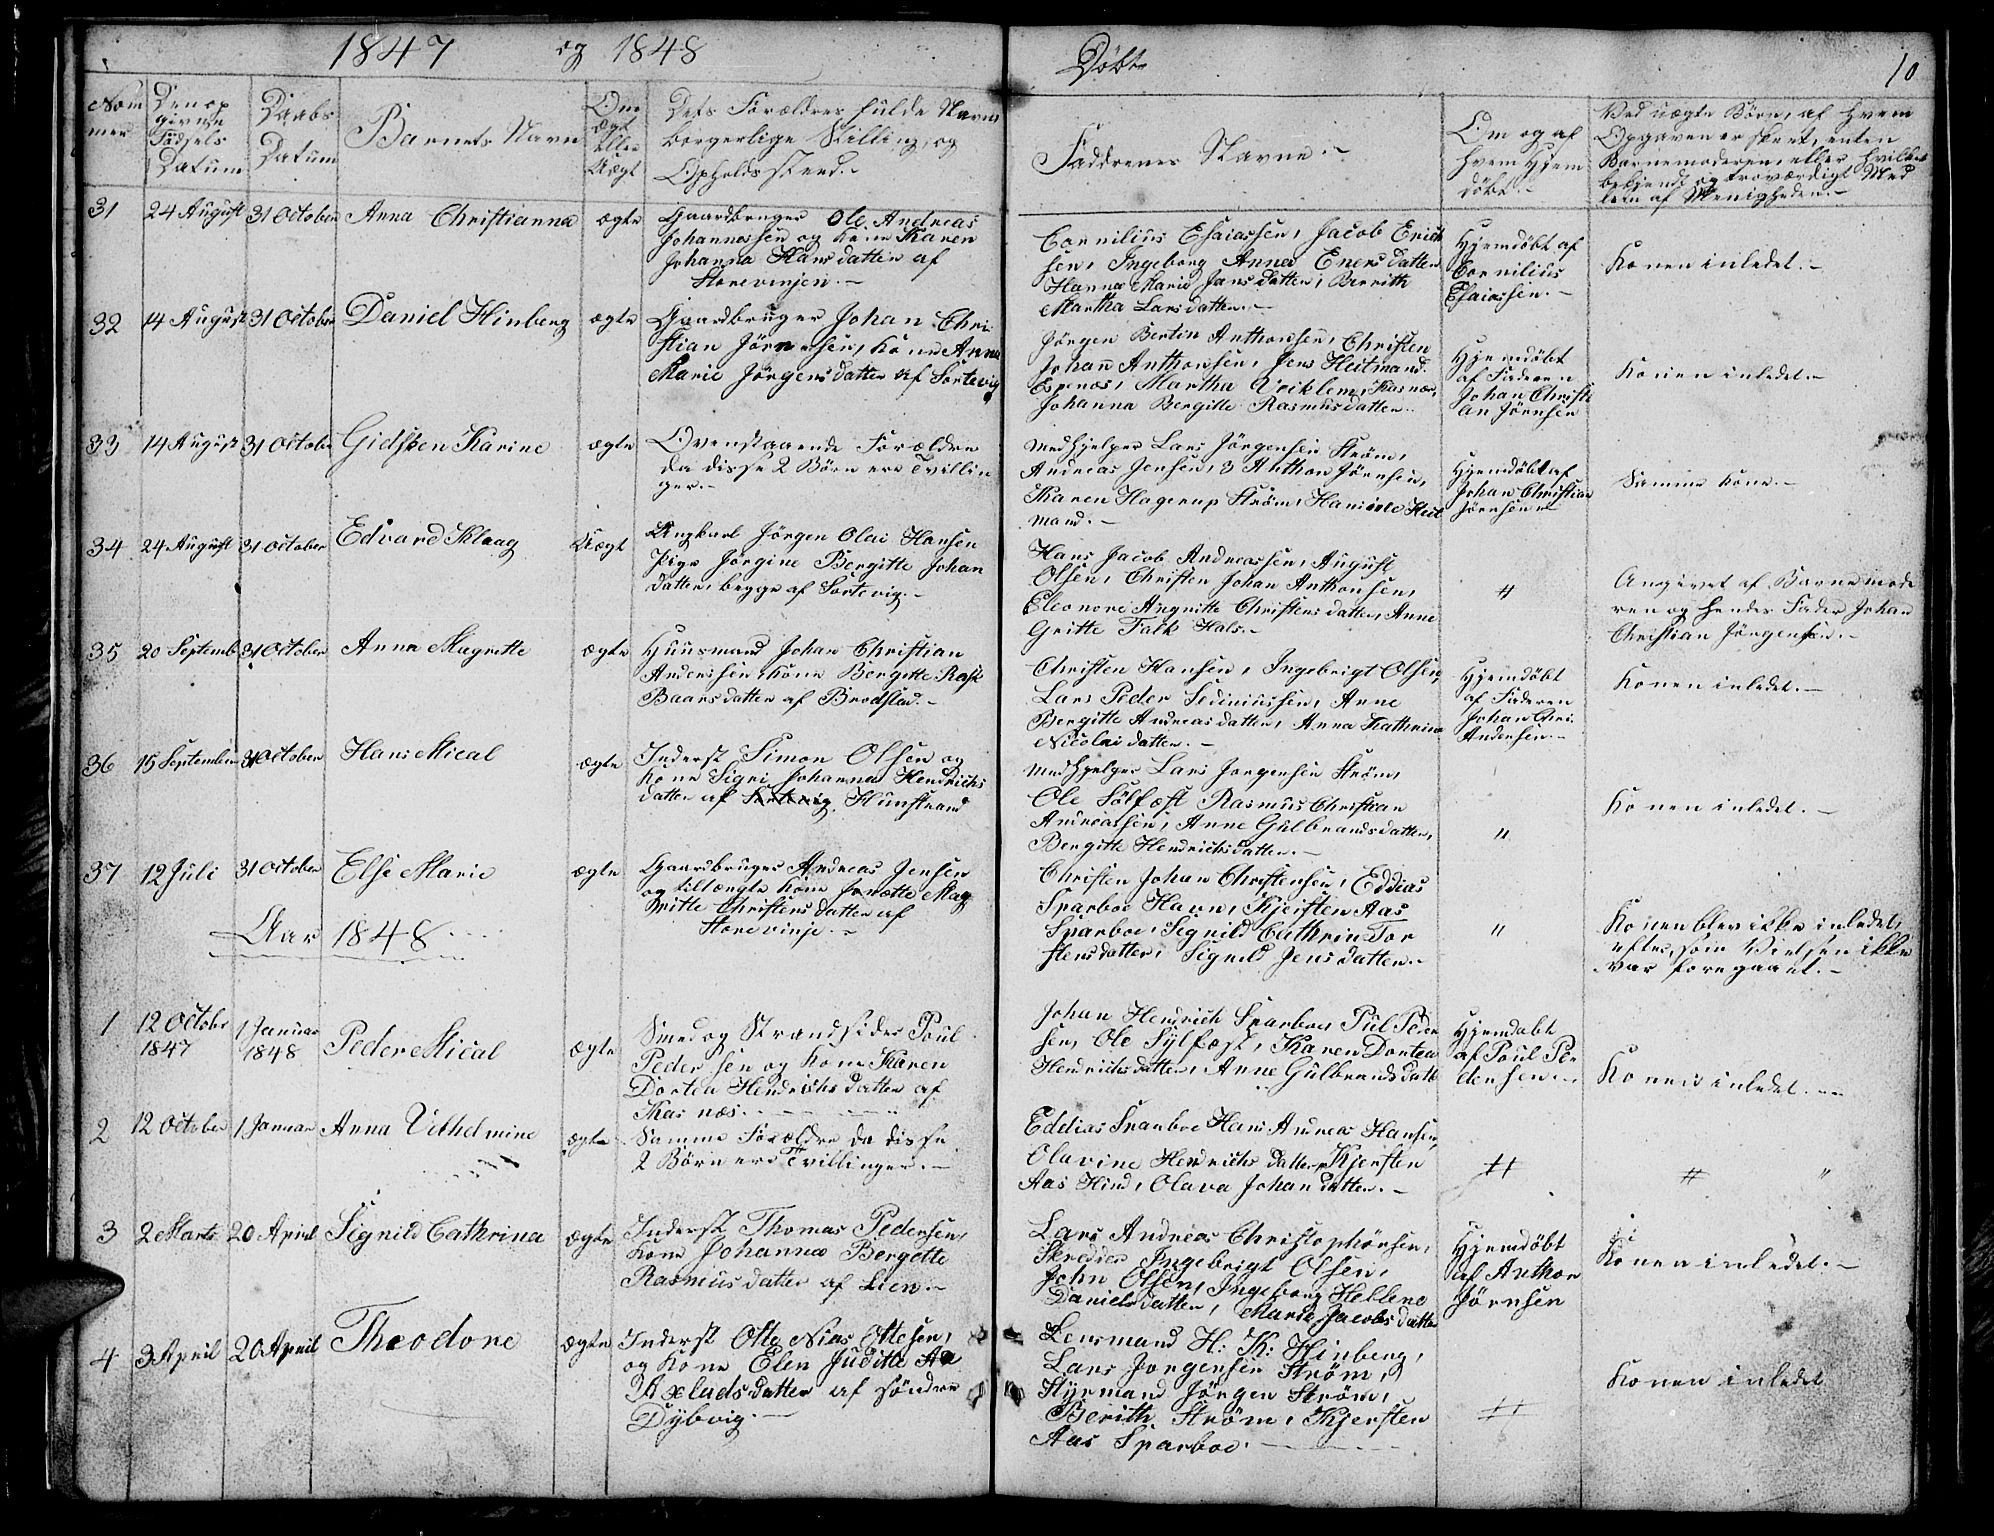 1847 og 1848
Døbte 10
Nom
mer
Den op
givne
Fødsels
Datum
Daabs
Datum
Barnets Navn
Om
ægt
eller
Uægt
Dets Forældres fulde Navn
borgerlige Stilling og
Opholdssted.
Faddrenes Navne.
Om og af
hvem hjem
døbt.
Ved uægte Børn, af hvem
Opgaven er skeet, enten
Barnemoderen, eller hvilket
bekjendt og troværdigt Med
lem af Menigheden.
31 24 August 31 October Anna Christianna ægte
Gaardbruger Ole Andreas
Johannessen og Kone Karen
Johanna Hansdatter af
Storevinjen.
Cornilius Esaiassen, Jacob Erich
sen, Ingeborg Anna Enersdatter
Hanna Marie Jansdatter, Berrith
Martha Larsdatter.
Hjemdøbt af
Cornilius
Esaiassen.
Konen inledet.
32 14 August 31 October Daniel Hinberg ægte
Gaardbruger Johan Chri
stian Jörnsen, Kone Anna
Marie Jörgensdatter af Sortevig
Jörgen Bertin Anthonsen, Christen
Johan Anthonsen, Jens Heitmand
Espenæs, Martha Kasnæs,
Johanna Bergitte Rasmusdatter.
Hjemdøbt
af Faderen
Johan Christi
an Jörnsen
Konen inledet.
33 14 August 31 October Gidsken Karine ægte
Ovenstaaende Forældre
da disse 2 Børn ere Tvillin
ger.
Medhjelper Lars Jörgensen Strøm,
Andreas Jensen, 3 Anthon Jörnsen,
Karen Hagerup Strøm, Hansine Heit
mand.
Hjemdøbt af
Johan Christian
Jörnsen
Samme Kone.
34 24 August 31 October Edvard Klaag Uægt
Ungkarl Jörgen Olai Hansen
Pige Jörgine Bergitte Johan
datter, begge af Sortevig.
Hans Jacob Andreassen, August
Olsen, Christen Johan Anthonsen,
Eleonore Angritte Christensdatter, Anne
Gritte Falk Hals.
"
Angivet af Barnemode
ren og hendes Fader Johan
Christian Jörgensen.
35 20 Septemb 31 October Anna Magrette ægte
Huusmand Johan Christian
Anderssen, Kone Bergitte Rask
Baarsdatter af Brodstad.
Christen Hansen, Ingebrigt Olsen,
Lars Peder Sediniussen, Anne
Bergitte Andreasdatter, Anna Kathrina
Nicolaidatter.
Hjemdøbt
af Faderen
Johan Chri.
Andersen.
Konen inledet.
36 15 September 31 October Hans Mical ægte
Inderst Simon Olsen og
Kone Signi Johanna Hendrichs
datter af Sortevig Hunstrand
Medhjelper Lars Jorgensen Strøm,
Ole Sölfæst, Rasmus Christian
Andreassen, Anne Gulbrandsdatter,
Bergitte Hendrichsdatter.
"
Konen inledet.
37 12 Juli 31 October Else Marie ægte
Gaardbruger Andreas Jensen
og tiltængte Kone Jonette Mag
gritte Christensdatter af
Storevinje.
Christen Johan Christensen, Eddias
Sparboe Havn, Kjersten Aas
Sparboe, Signild Cathrin Tor
stensdatter, Signild Jensdatter.
"
Konen blev ikke inledet,
eftersom Vielsen ikke
var foregaaet.
Aar 1848
1 12 Octobr
1847
1 Januar
1848
Peder Mical ægte
Smed og Strandsider Poul
Pedersen og Kone Karen
Dortea Hendrichsdatter af
Kasnæs.
Johan Hendrich Sparboe, Pul Peder
sen, Ole Sylfæst, Karen Dortea
Hendrichsdatter, Anne Gulbrandsdatt
Hjemdøbt
af Poul Pe
dersen.
Konen inledet.
2 12 October 1 Januar Anna Vilhelmine ægte
Samme Forældre da disse
2 Børn ere Tvillinger.
Eddias Sparboe, Hans Andreas Hansen,
Olavine Hendrichsdatter, Kjersten
Aas Hind, Olava Johandatter.
" " "
3 2 Marts 20 April Signild Cathrina ægte
Inderst Thomas Pedersen,
Kone Johanna Bergette
Rasmusdatter af Lien.
Lars Andreas Christophørsen,
Skredder Ingebrigt Olsen,
John Olsen, Ingeborg Hellene
Danielsdatter, Marte Jacobsdatter
Hjemdøbt
af Anthon
Jörnsen
Konen inledet.
4 3 April 20 April Theodore ægte
Inderst Otte Nias Ottesen,
og Kone Elen Juditte
Axeludsdatter af søndre
Dybvig.
Lensmand H: K: Hinberg,
Lars Jorgensen Strøm,
Styrmand Jörgen Strøm,
Berith Strøm, Kjersten
Aas Sparboe.
"
Konen inledet